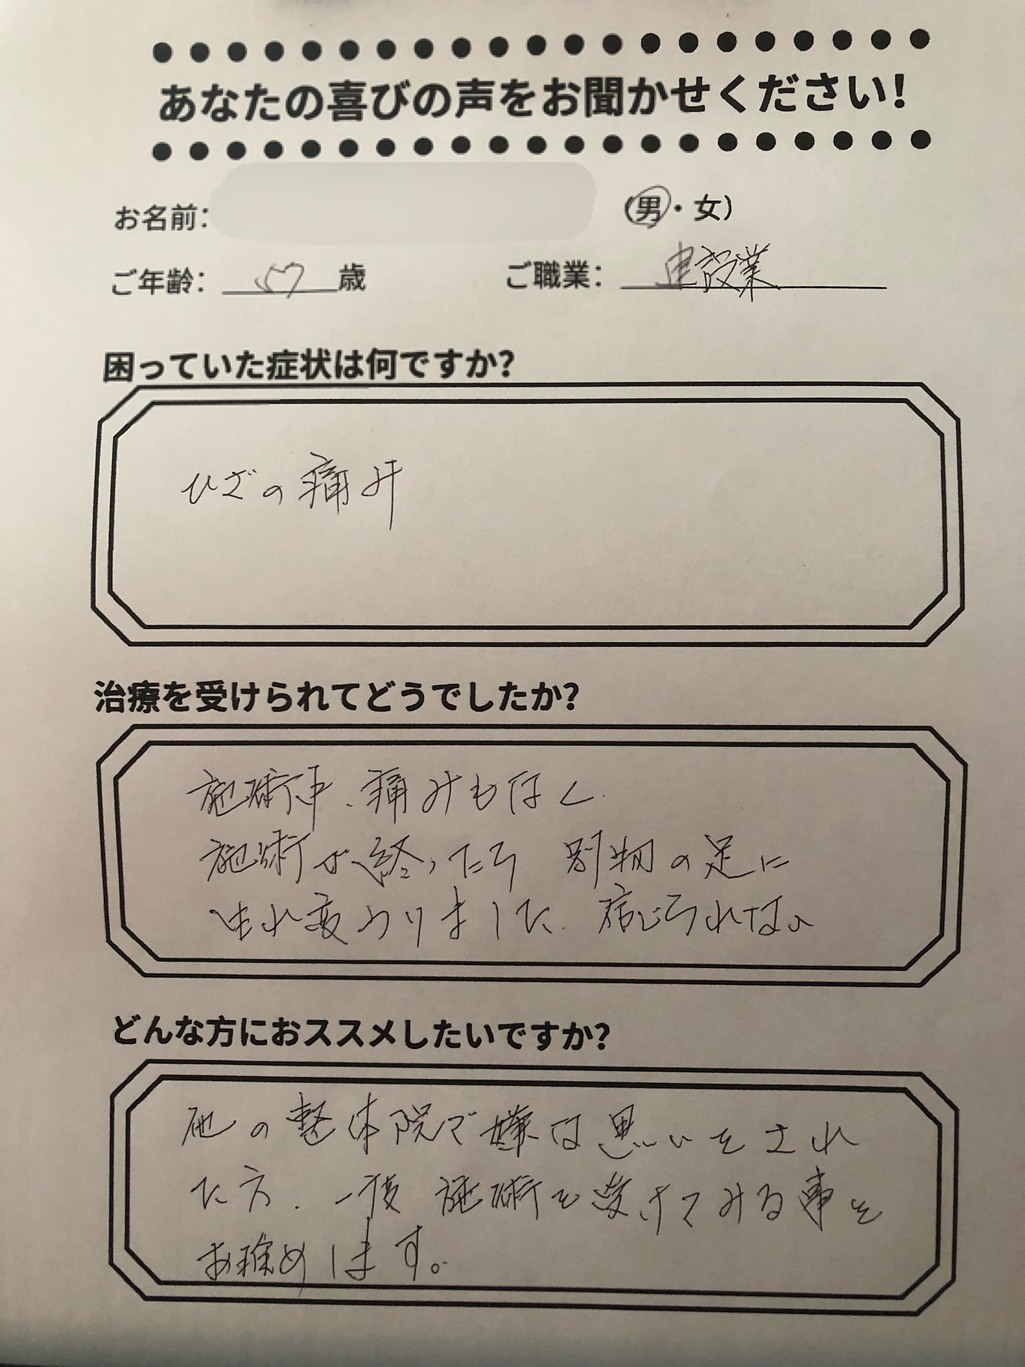 あなたの喜びの声をお聞かせください!
お名前: (男・女)
ご年齢: 57歳 ご職業: 建設業
困っていた症状は何ですか?
ひざの痛み
治療を受けられてどうでしたか?
施術中、痛みもなく
施術が終ったら 別物の足に
生れ変わりました。信じられない
どんな方におススメしたいですか?
他の整体院で嫌な思いをされ
た方、一度 施術を受けてみる事を
お推めします。